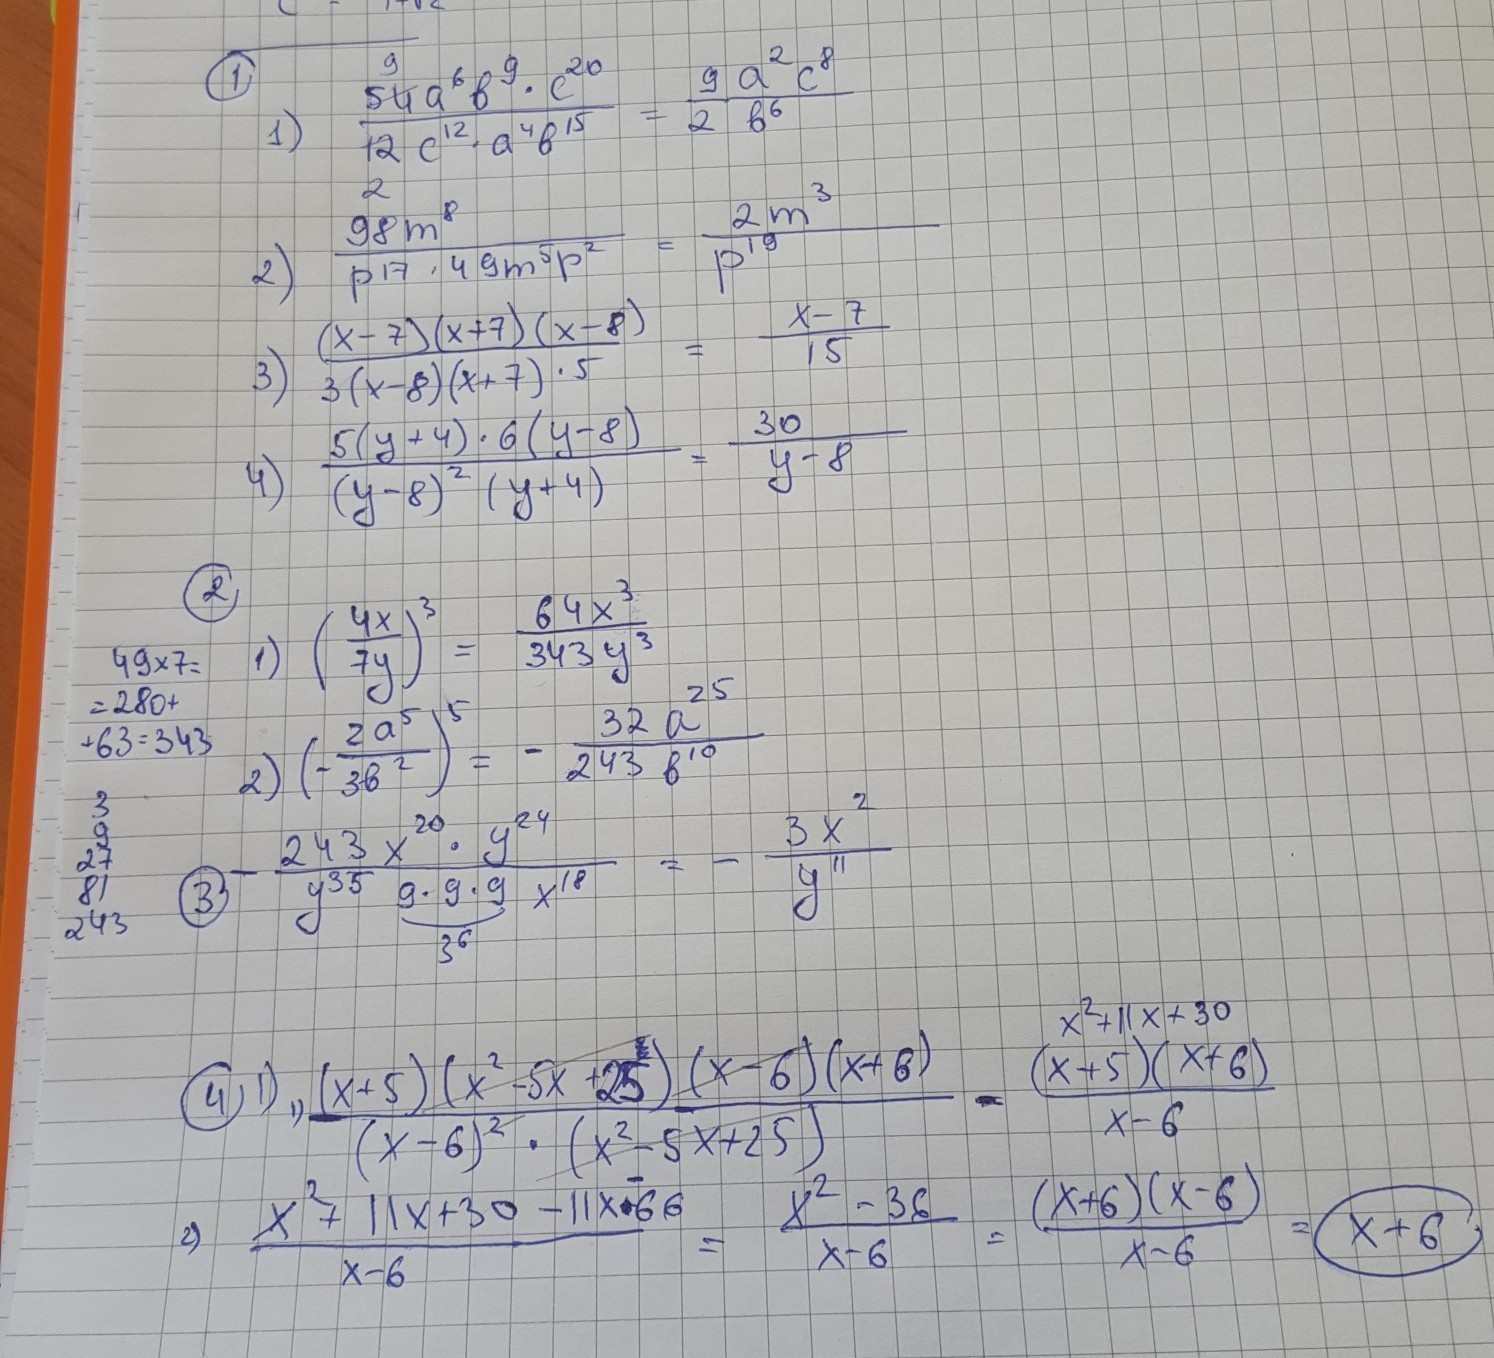 ①
1) 54a⁶b⁹·c²⁰ / 12c¹²·a⁴b¹⁵ = 9a²c⁸ / 2b⁶
9
2
2) 98m⁸ / p17·49m⁵p² = 2m³ / p¹⁹
3) (x-7)(x+7)(x-8) / 3(x-8)(x+7)·5 = x-7 / 15
4) 5(y+4)·6(y-8) / (y-8)²(y+4) = 30 / y-8
②
1) (4x / 7y)³ = 64x³ / 343y³
49x7=
=280+
+63=343
2) (-2a⁵ / 3b²)⁵ = - 32a²⁵ / 243b¹⁰
3
9
27
81
243
③ - 243x²⁰·y²⁴ / y³⁵ 9·9·9 x¹⁸ = - 3x² / y¹¹
3⁶
x²+11x+30
④ 1) (x+5)(x²-5x+25)(x-6)(x+6) / (x-6)²·(x²-5x+25) = (x+5)(x+6) / x-6
2) x²+11x+30-11x-66 / x-6 = x²-36 / x-6 = (x+6)(x-6) / x-6 = x+6